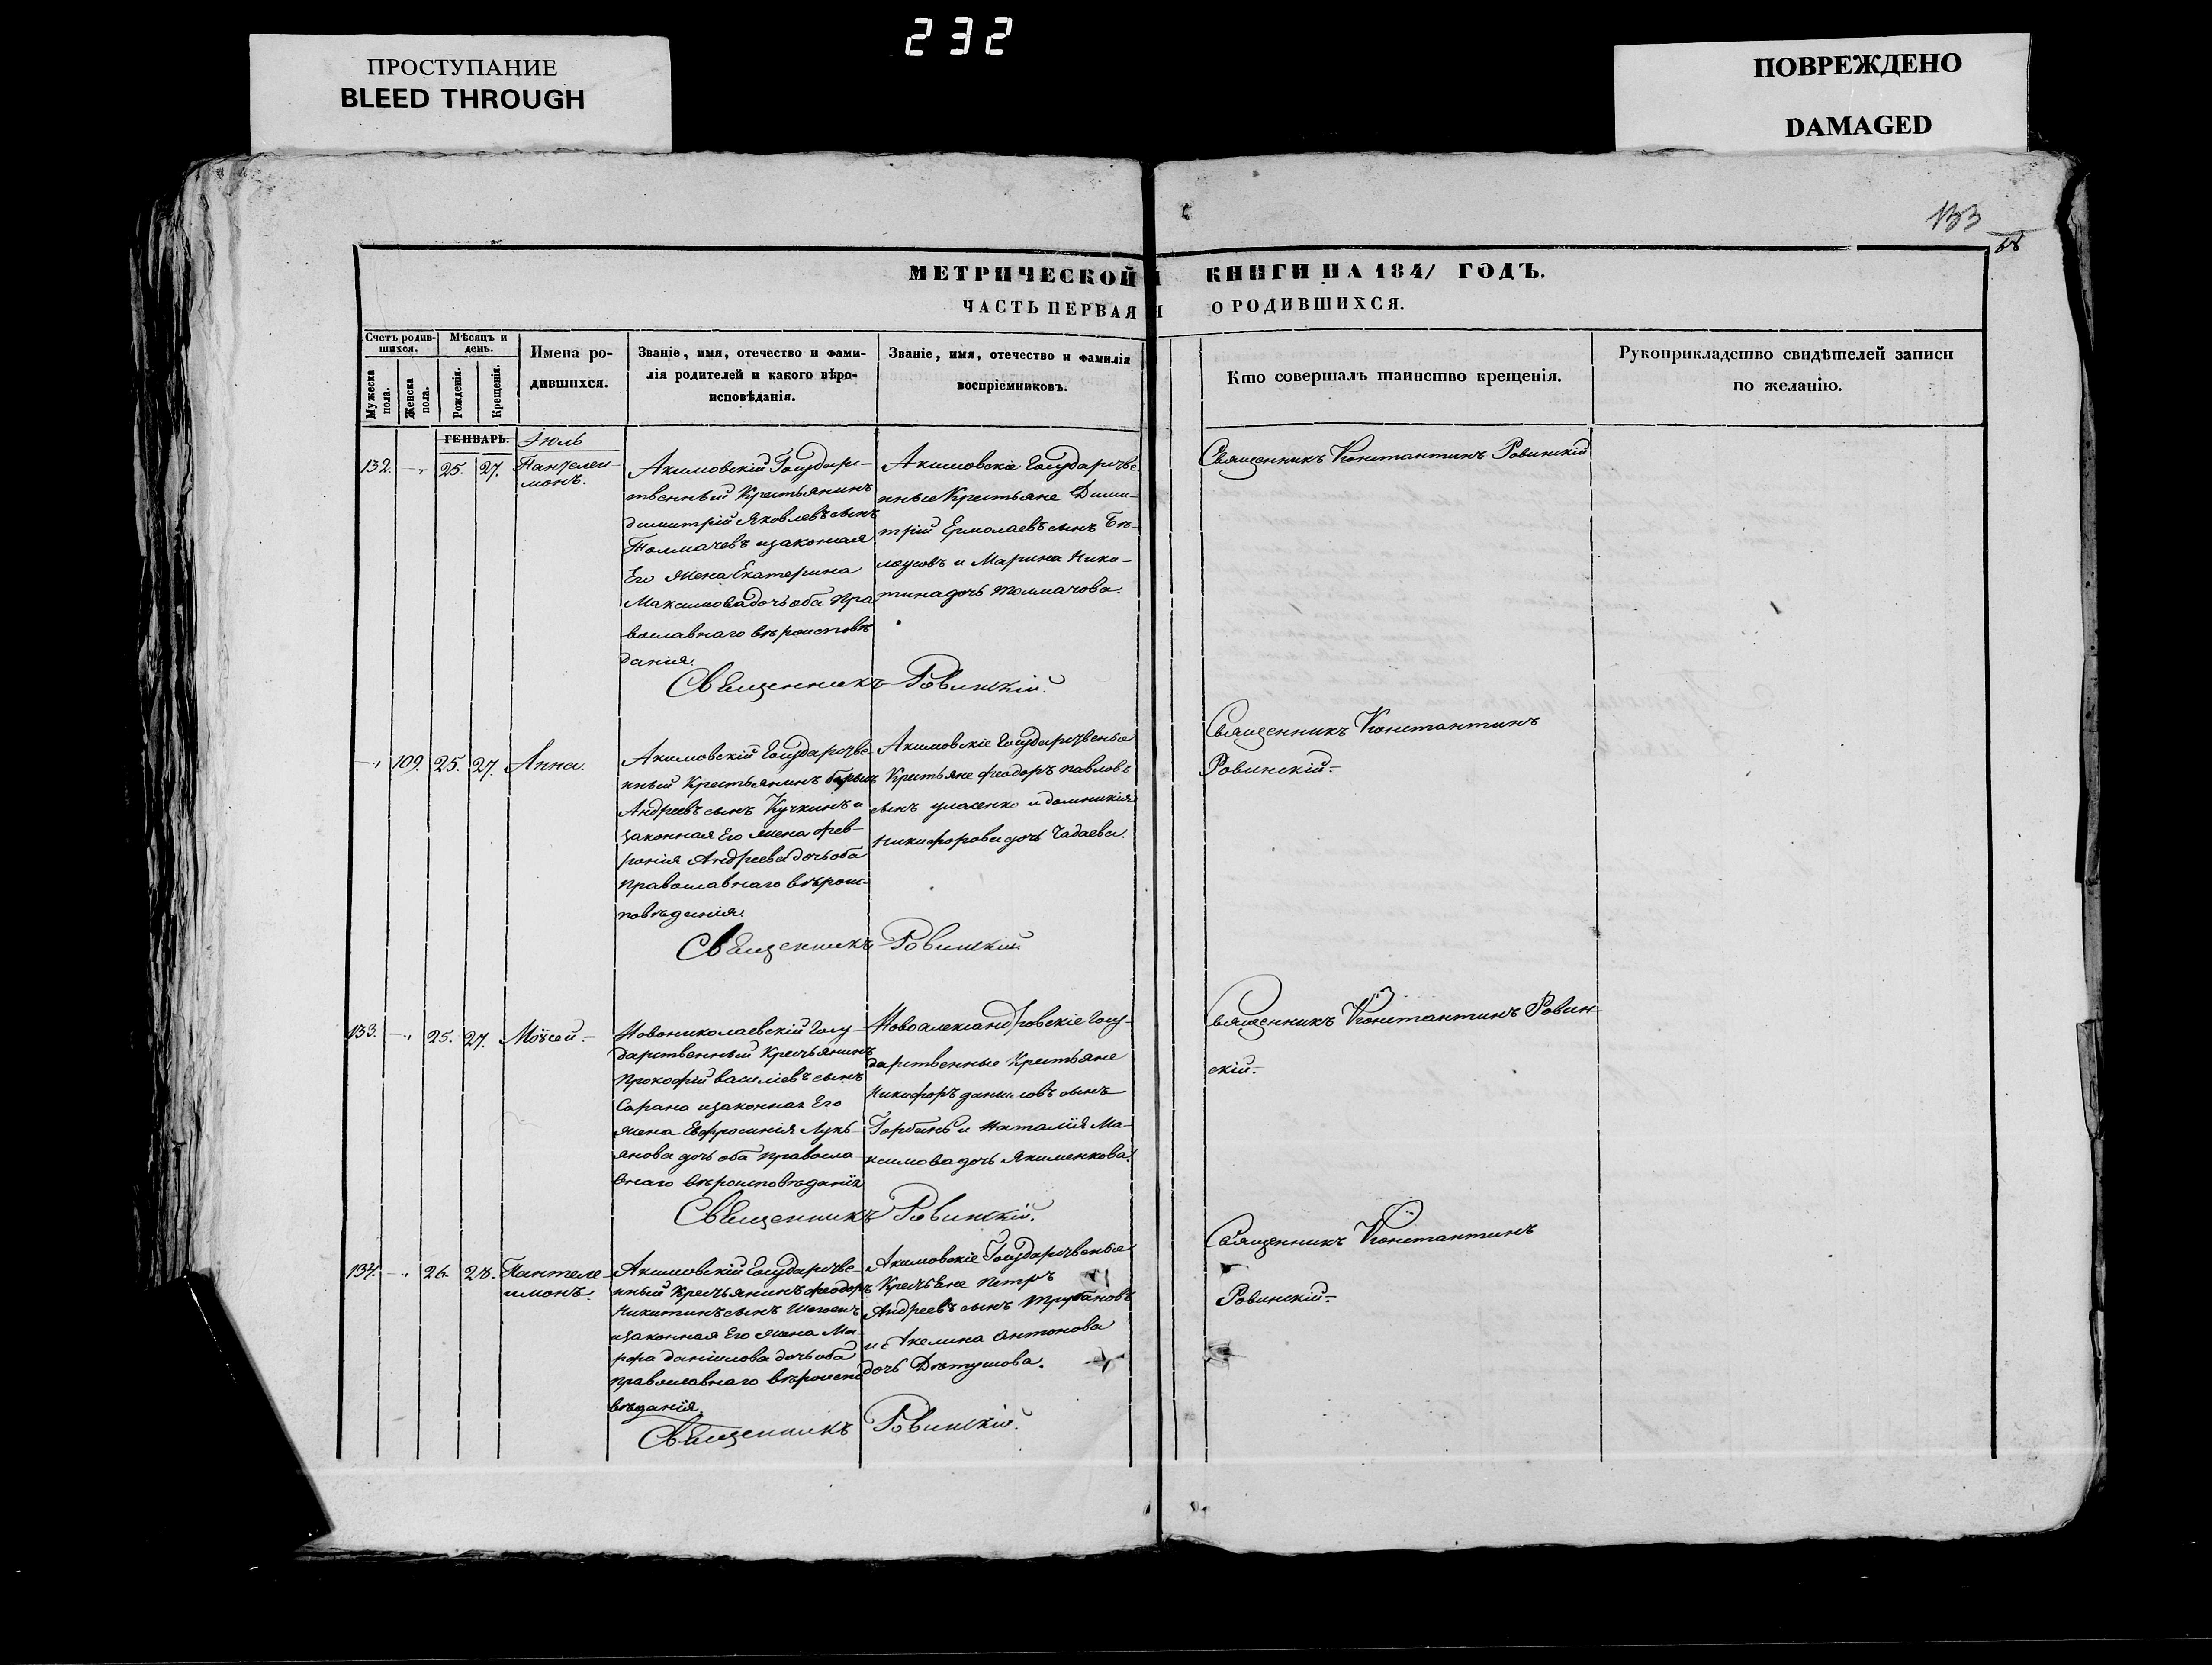 232
ПРОСТУПАНИЕ
BLEED THROUGH
ПОВРЕЖДЕНО
DAMAGED
133
МЕТРИЧЕСКОЙ КНИГИ НА 1841 ГОДЪ.
ЧАСТЬ ПЕРВАЯ О РОДИВШИХСЯ.
Счетъ родив-
шихся.
Мужеска
пола.
Женска
пола.
Мѣсяцъ и
день.
Рожденія.
Крещенія.
Имена ро-
дившихся.
Званіе, имя, отечество и фами-
лія родителей и какого вѣро-
исповѣданія.
Званіе, имя, отечество и фамилія
воспріемниковъ.
Кто совершалъ таинство крещенія.
Рукоприкладство свидѣтелей записи
по желанію.
ГЕНВАРЬ. Іюль
132. 25. 27. Пантелеи-
монъ.
Акимовскій Государс-
твенный Крестьянинъ
димитрій Яковлевъ сынъ
Толмачевъ изаконная
Его Жена Екатерина
Максимова дочь оба Пра
вославнаго вѣроисповѣ
данія.
Акимовскіе Государстве
нные Крестьяне Дими-
трій Ермолаевъ сынъ Бѣ-
лоусовъ и Марина Ники-
тина дочь толмачова.
Священникъ Константинъ Ровинскій
Священникъ Ровинскій.
109. 25. 27. Анна.
Акимовскій Государстве-
нный Крестьянинъ
Андреевъ сынъ Кучкинъ и
законная Его жена фев-
ронія Андреева дочь оба
православнаго вѣроис-
повѣданія.
Акимовскіе Государственые
Крестьяне феодоръ павловъ
сынъ и домникія
Никифорова дочь Чадаева.
Священникъ Константинъ
Ровинскій.
Священникъ Ровинскій.
133. 25. 27. Моѵсей.
Новониколаевскій Госу-
дарственный Крестьянинъ
Прокофій василіевъ сынъ
Сарана изаконная Его
жена Евфросинія Лукь-
янова дочь оба правосла-
внаго вѣроисповѣданія
Новоалександровскіе Госу-
дарственные Крестьяне
Никифоръ даниловъ сынъ
Горбань и Наталія Ма-
ксимова дочь Якименкова.
Священникъ Константинъ Ровин-
скій.
Священникъ Ровинскій.
134. 26. 28. Пантеле-
имонъ.
Акимовскій Государстве-
нный Крестьянинъ феодоръ
Никитинъ сынъ
изаконная Его жена Ма-
рфа даніилова дочь оба
православнаго вѣроиспо
вѣданія.
Акимовскіе Государственые
Крестьяне Петръ
Андреевъ сынъ Трубановъ
и Акелина антонова
дочь Дѣтушова.
Священникъ Константинъ
Ровинскій.
Священникъ Ровинскій.